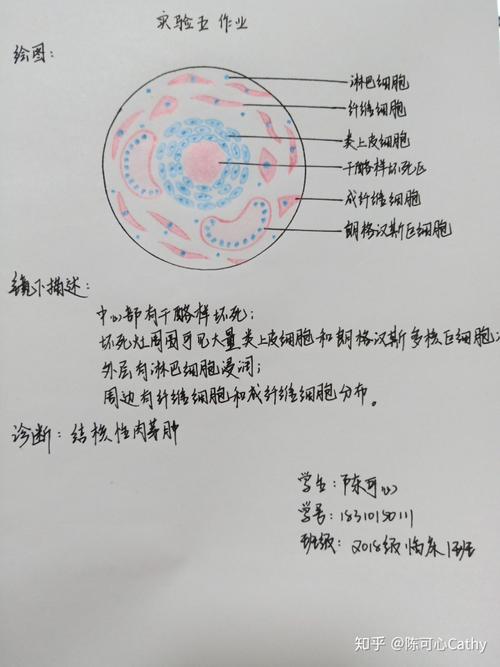 实验五 作业
绘图:
淋巴细胞
纤维细胞
类上皮细胞
干酪样坏死区
成纤维细胞
朗格汉斯巨细胞
镜下描述:
中心部有干酪样坏死;
坏死灶周围可见大量类上皮细胞和朗格汉斯多核巨细胞;
外层有淋巴细胞浸润;
周边有纤维细胞和成纤维细胞分布。
诊断: 结核性肉芽肿
学生: 陈可心
学号: 18310150111
班级: 2018级临床1班
知乎 @陈可心Cathy